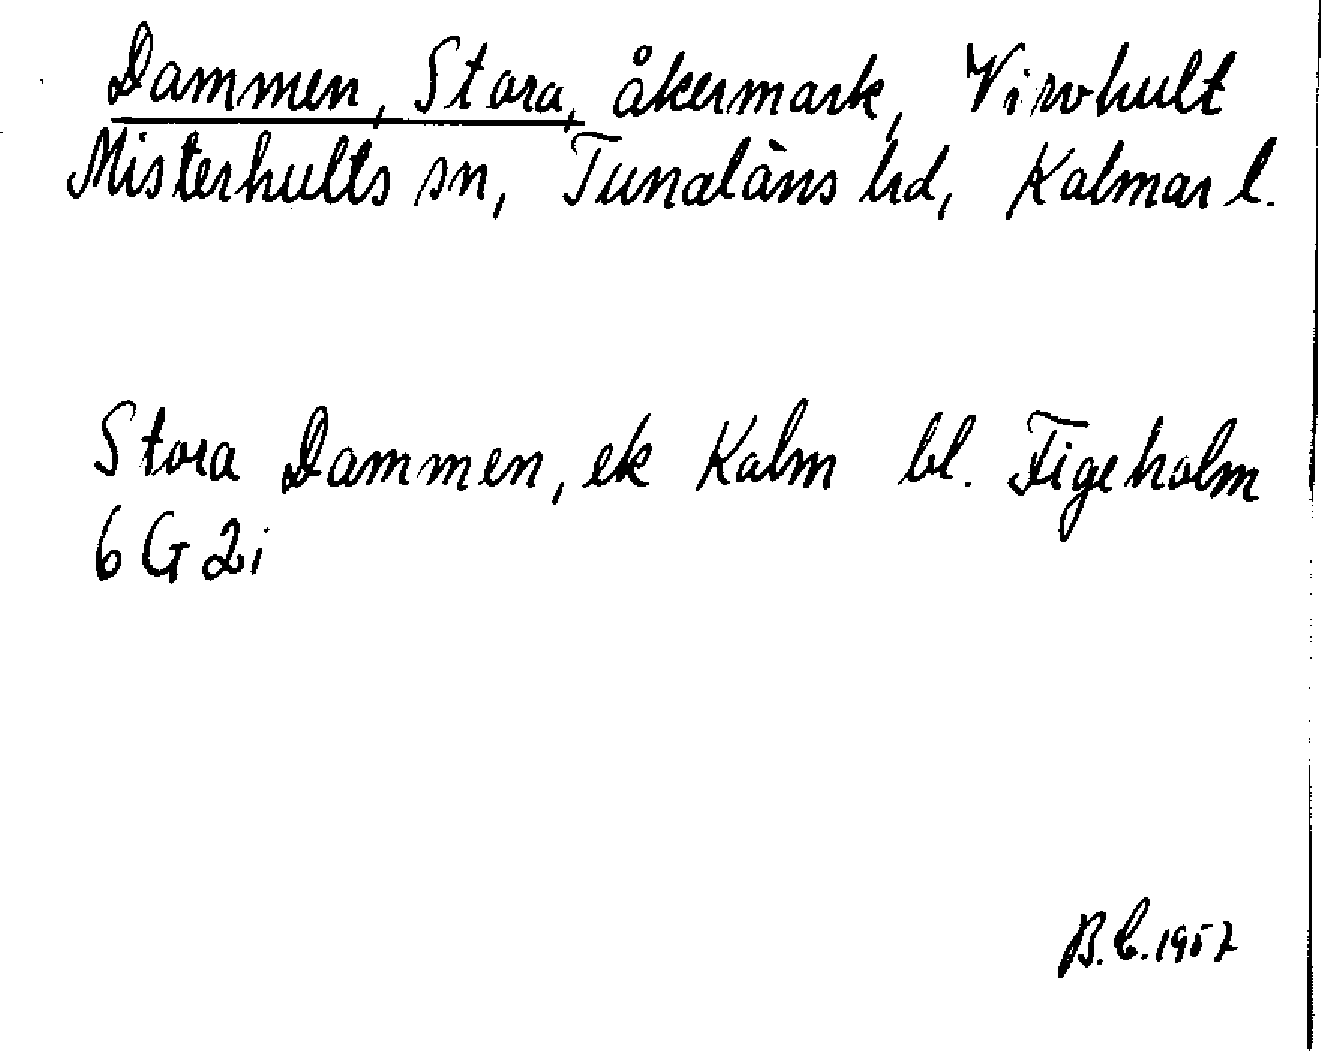 Dammen, Stora, åkermark, Virohult
Misterhults sn, Tunaläns hd, Kalmar l.
Stora Dammen, ek Kalm bl. Figeholm
6 G 2i
B.C. 1957